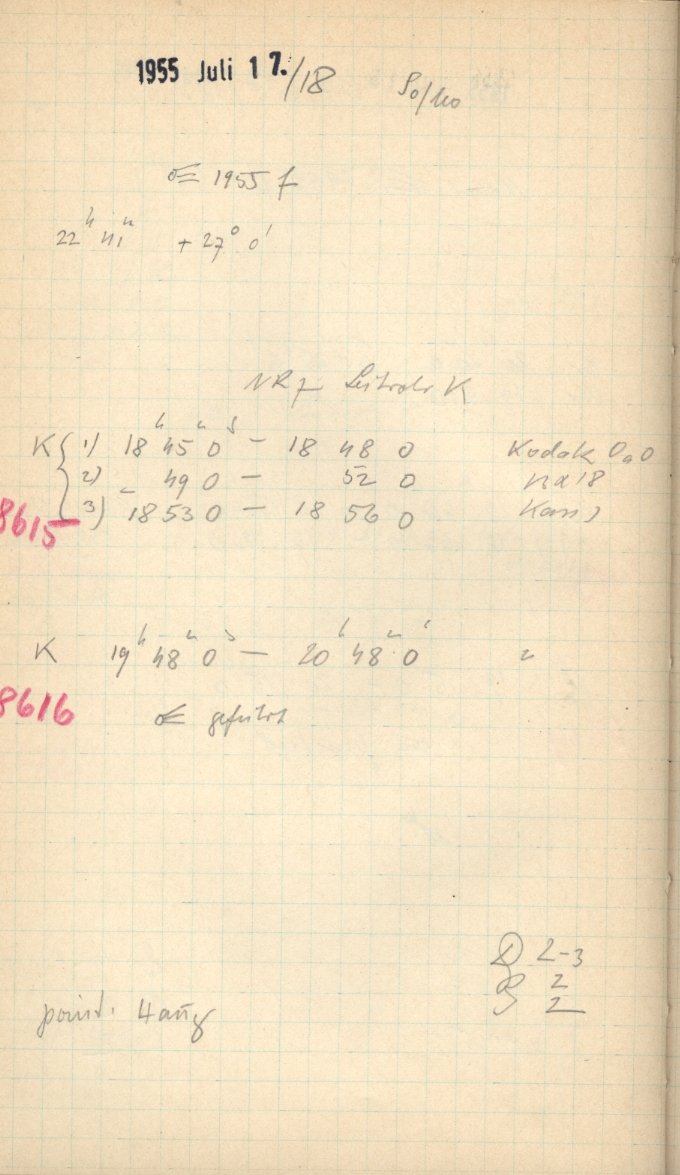 1955 Juli 17./18 So/Mo
☄ 1955 f
22ʰ 41ᵐ + 27° 0'
Leitrohr K
K { 1) 18ʰ 45ᵐ 0ˢ – 18 48 0 Kodak OaO
2) 49 0 – 52 0
3) 18 53 0 – 18 56 0
8615
K 19ʰ 48ᵐ 0ˢ – 20ʰ 48ᵐ 0ˢ
8616
☄ geführt
2-3
2
2
point. Hang